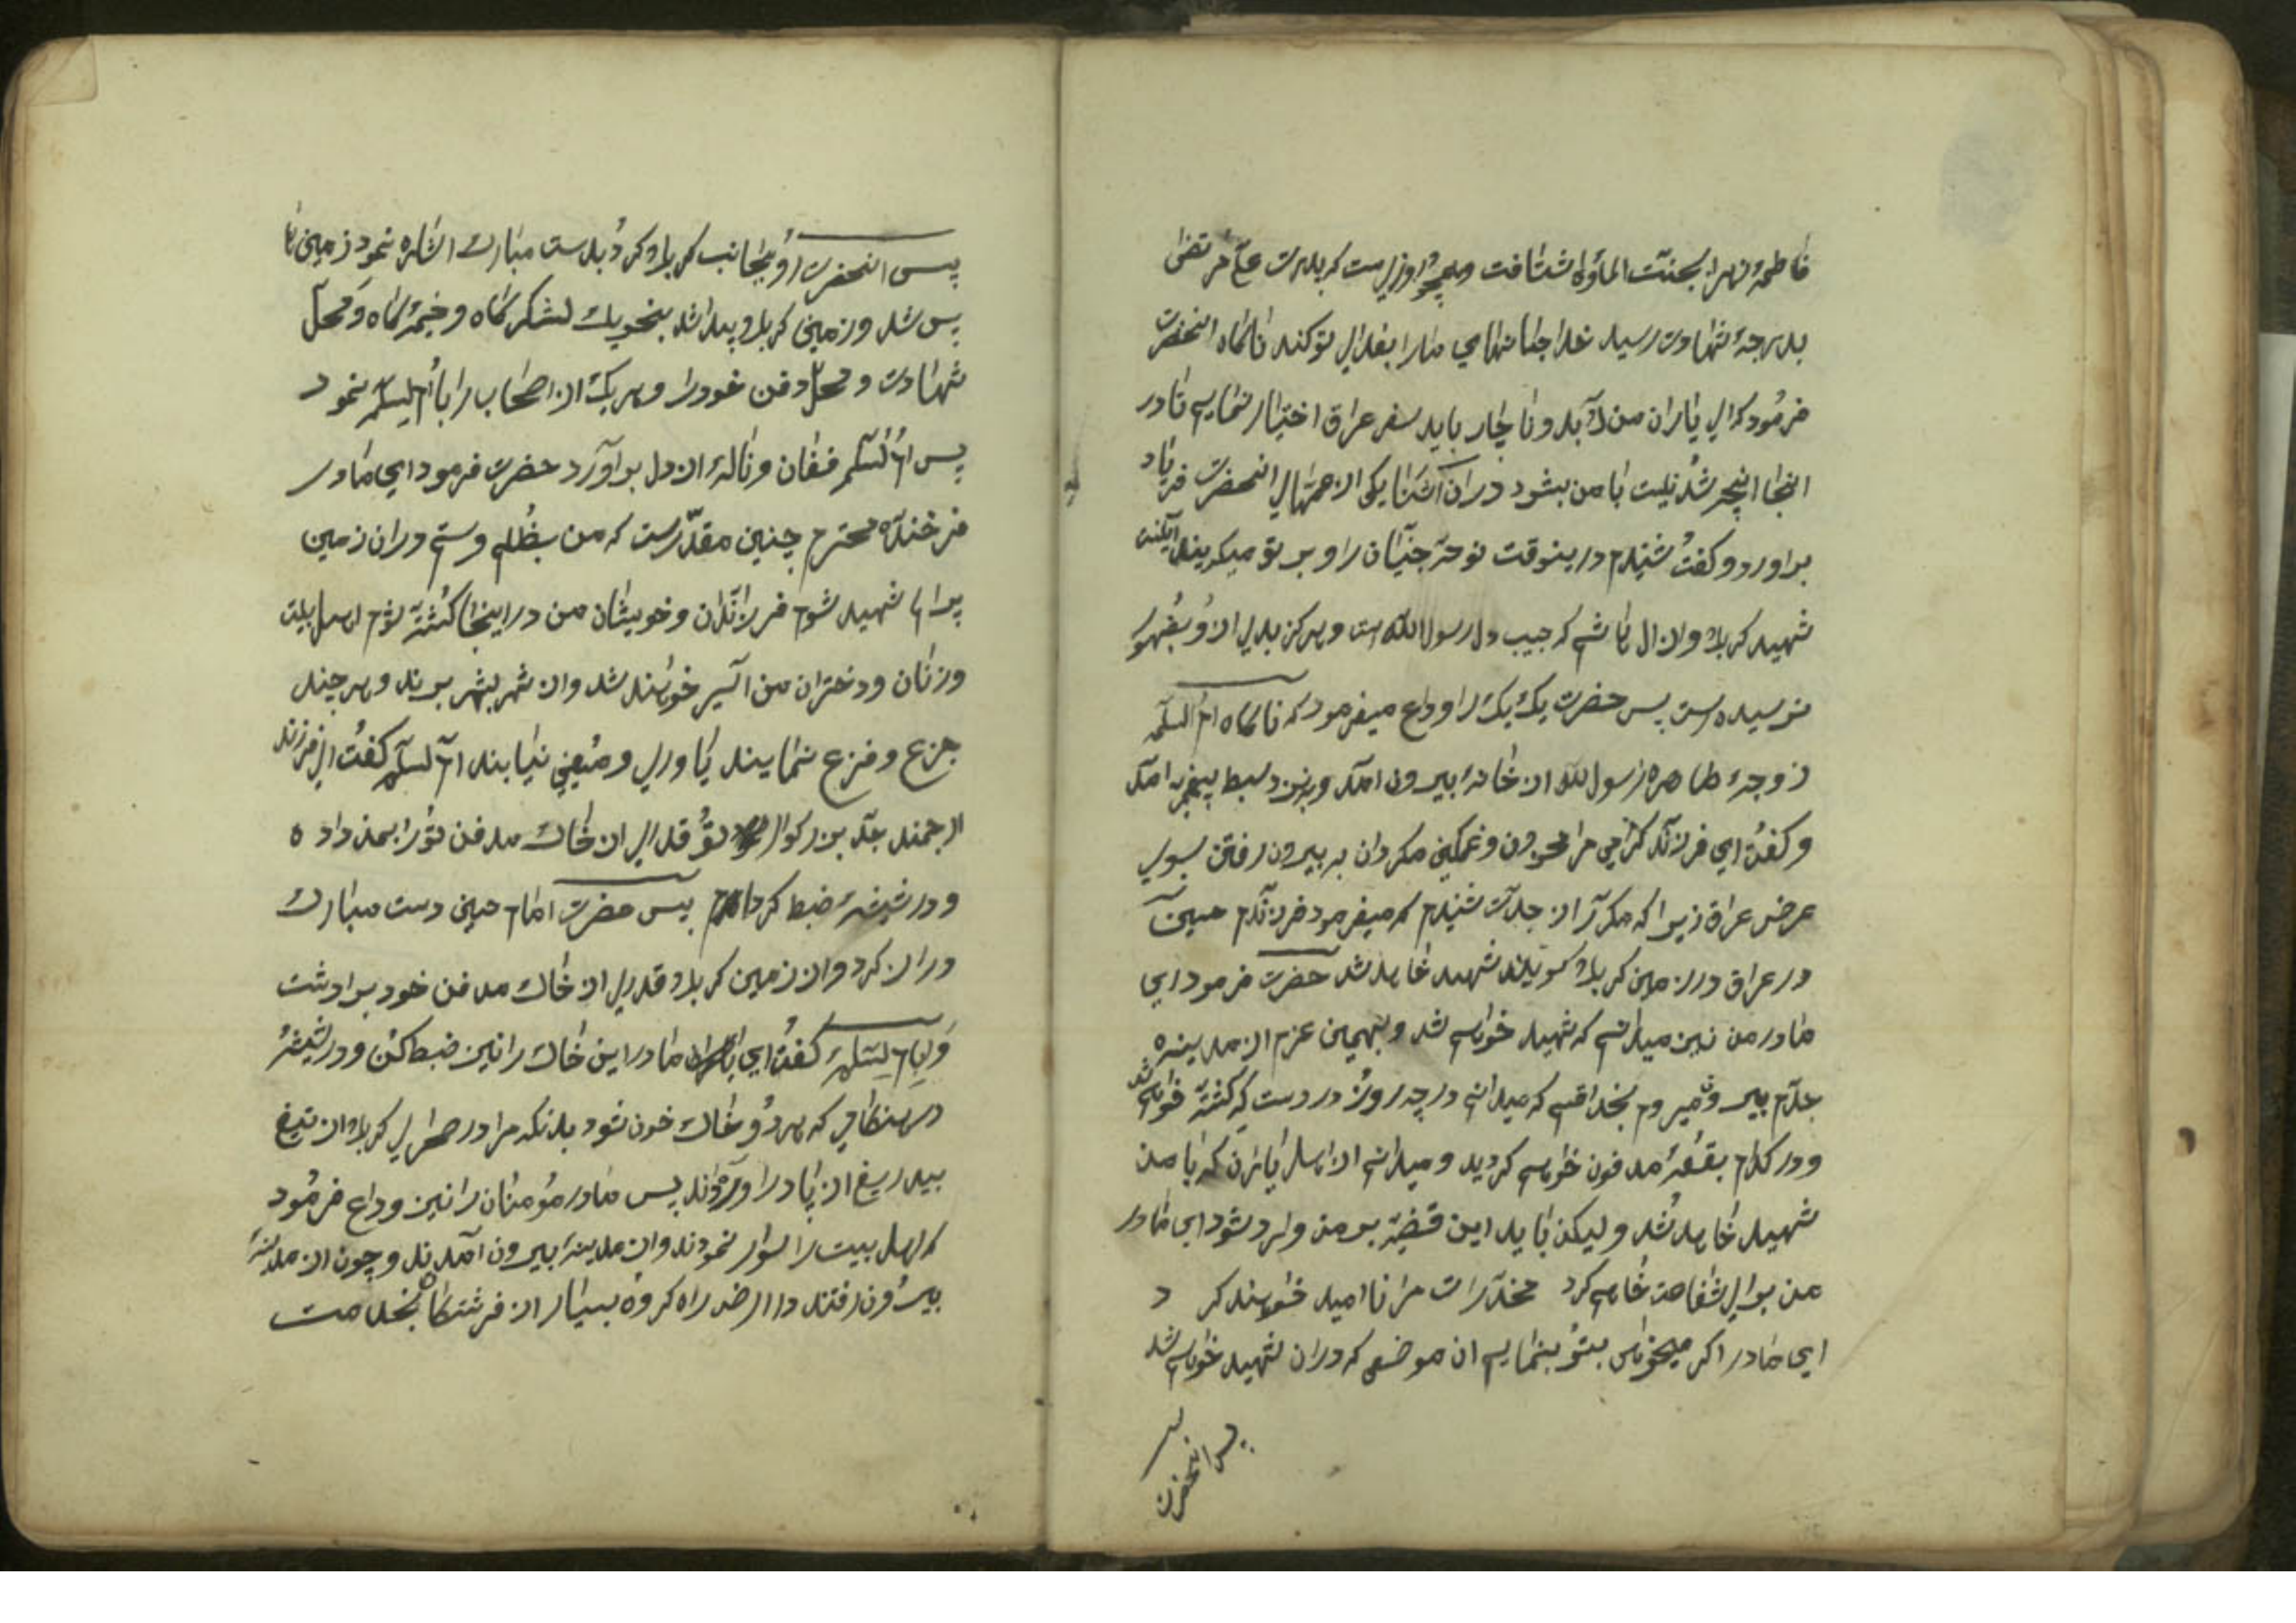 فاطمهٔ زهرا بجنت المأوا شتافت و همچو روزیست که پدرت علی مرتضی
بدرجهٔ شهادت رسید خدا جانهای ما را بفدای تو کند ناکاه انحضرت
فرمود که ای یاران من لابد و ناچار باید سفر عراق اختیار نمایم تا در
انجا انچه شدنیست با من بشود در ان اثنا یکی از عمهای انحضرت فریاد
براورد و کفت شنیدم درینوقت نوحهٔ جنیان را و بر تو میکریند میکفتند
شهید کربلا و از ال هاشم که حبیب دل رسول الله است و هرکز بدی از و بظهور
نرسیده است پس حضرت یک یک را وداع میفرمود که ناکاه ام السلمه
زوجهٔ طاهره رسول الله از خانه بیرون امد و بنزد سبط پیغمبر امد
و کفت ای فرزند کرامی مرا محزون و غمکین مکردان به بیرون رفتن بسوی
عرض عراق زیرا که مکرر از جدت شنیدم که میفرمود فرزندم حسین
در عراق در زمین کربلا کویند شهید خاهد شد حضرت فرمود ای
مادر من نیز میدانم که شهید خواهم شد و بهمین عزم از مدینه
جدم بیرون میروم بخدا قسم که میدانم در چه روز و در دست که کشته خواهم شد
و در کدام بقعهٔ مدفون خواهم کردید و میدانم از اهل یاران که با من
شهید خاهد شد و لیکن باید این قضیه بر من وارد شود ای مادر
من برای شفاعت خاهم کرد مخدرات مرا ناامید خواهند کرد
ای مادر اکر میخواهی بتو بنمایم ان موضعی که در ان شهید خواهم شد
پس انحضرت
پس انحضرت رو بجانب کربلا کرد و بدست مبارک اشاره نمود زمین ها
پس شد و زمین کربلا پیدا شد بنحویک لشکر کاه و خیمه کاه و محل
شهادت و محل دفن خود را و هر یک از اصحاب را بام السلمه نمود
پس ام السلمه فغان و نالهٔ از دل براورد حضرت فرمود ای مادر
فرخندهٔ محترم چنین مقدرست که من بظلم و ستم در ان زمین
پر بلا شهید شوم فرزندان و خویشان من در اینجا کشته شوم اهل بیت
و زنان و دختران من اسیر خواهند شد و از شهر بشهر برند و هر چند
جزع و فزع نمایند یاوری و معینی نیابند ام السلمه کفت ای فرزند
ارجمند جد بزرکوار تو قدری از خاک مدفن تو را بمن داده
و در شیشهٔ ضبط کردم پس حضرت امام حسین دست مبارک
دراز کرد و از زمین کربلا قدری از خاک مدفن خود برداشت
و بام السلمه کفت ای مادر این خاک را نیز ضبط کن و در شیشهٔ
در هنکامی که هر دو خاک خون شود بدانکه مرا در صحرای کربلا از تیغ
بیدریغ از پا در اورده‌اند پس مادر مؤمنان را نیز وداع فرمود
که اهل بیت را سوار نمودند و از مدینه بیرون آمدند و چون از مدینه
بیرون رفتند در ارض راه کروه بسیار از فرشتکان بخدمت